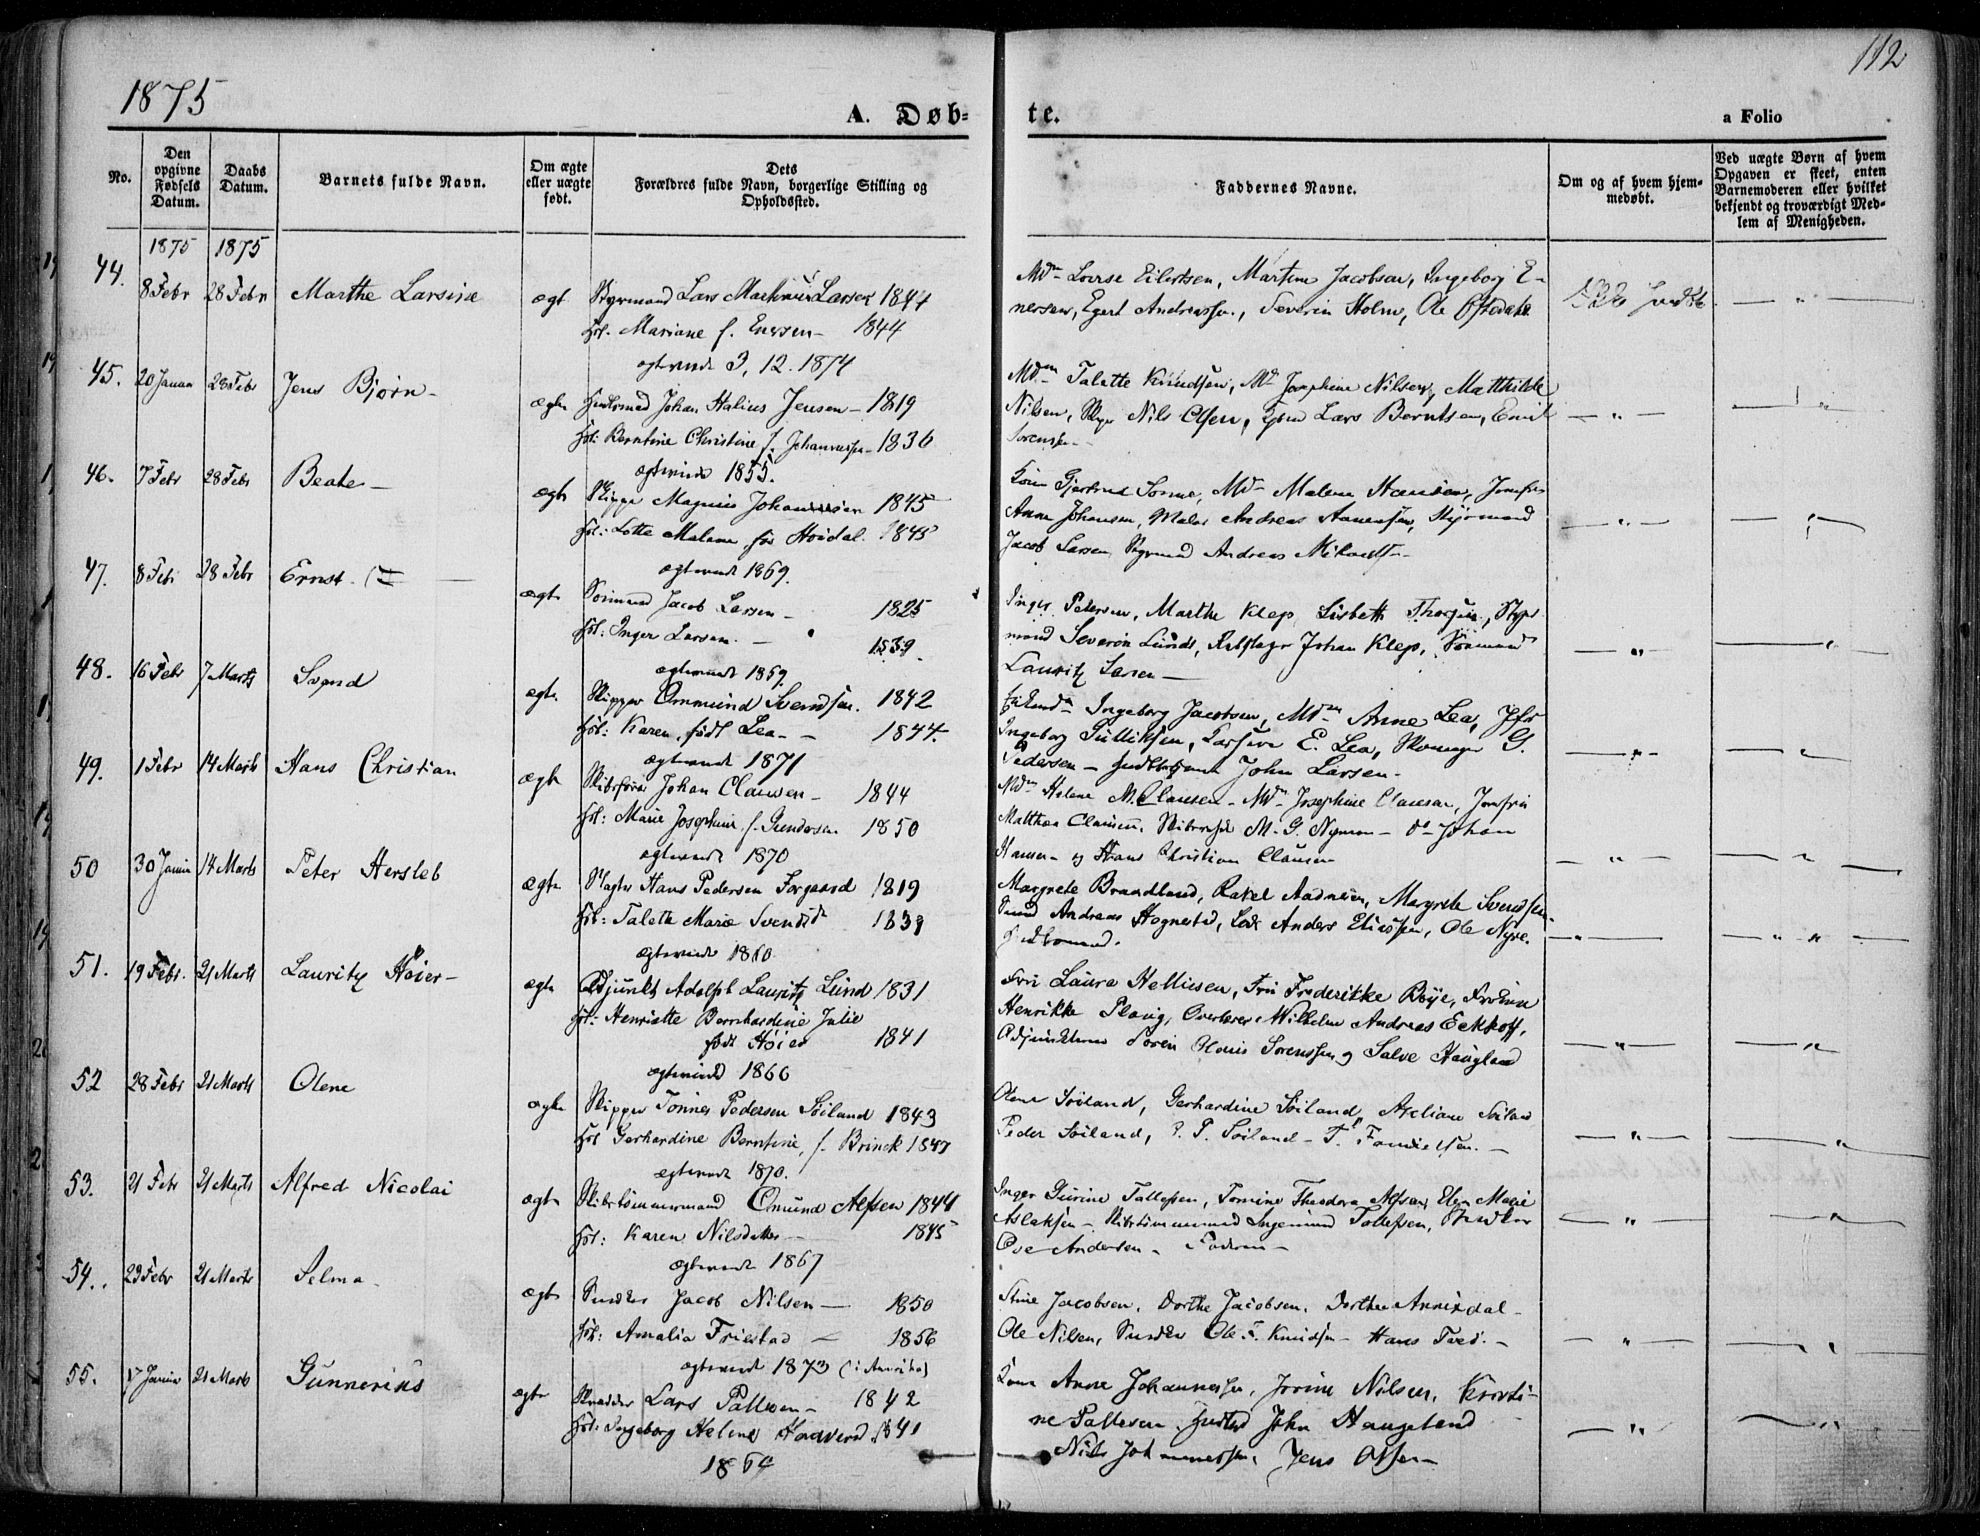 1875
112
A. Døb-
te.
a Folio
No.
Den opgivne Fødsels Datum.
Daabs Datum.
Barnets fulde Navn.
Om ægte eller uægte født.
Dets Forældres fulde Navn, borgerlige Stilling og Opholdssted.
Faddernes Navne.
Om og af hvem hjemmedøbt.
Ved uægte Børn af hvem Opgaven er skeet, enten Barnemoderen eller hvilket bekjendt og troværdigt Medlem af Menigheden.
1875 1875
44. 8 Febr 28 Febr Marthe Larsine ægt Styrmand Lars Martinius Larsen 1844
Hst. Mariane f. Enersen - 1844
ægteviede 3, 12. 1874
Eilertsen, Martine Jacobsen, Ingeborg E-
nersen, Egert Andreassen, Severin Holm, Ole
45. 20 Januar 28 Febr Jens Bjørn - ægte Johan Stalius Jensen - 1819
Hst: Berntine Christine f. Johannessen - 1836
ægteviede 1855.
Mdm Talette Knudsen, Md Josephine Nilsen, Matthilde
Nilsen, Nils Olsen, Lars Berntsen, Emil
Sørensen -
46. 7 Febr 28 Febr Beate - ægte Skipper Magnus Johannesen 1845
Hst: Lotte Malene før Høidal. 1845
ægteviede 1869.
Kone Gjertrud Sonne, Md Malene Hansen, Jomfru
Anne Johansen, Maler Andreas Aanensen, Styrmand
Jacob Larsen, Styrmand Andreas
47. 8 Feb 28 Febr Ernst - ægte Sømand Jacob Larsen - 1825
Hst: Inger Larsen. - 1839.
ægteviede 1859.
Inger Petersen, Marthe Klep, Lisbeth, Styr-
mand Severin Lunde, Johan Klep, Sømand
Lauritz Larsen -
48. 16 Febr 7 Marts Svend ægte. Skipper Ommund Svendsen. 1842
Hst: Karen, født Lea - - 1844.
ægteviede 1871
Ingeborg Jacobsen, Mdm Anne Lea, Jfr
Ingeborg Tulliksen, E. Lea, Skomager G.
Pedersen - John Larsen -
49. 1 Febr 14 Marts Hans Christian ægte Skibsfører Johan Clausen - 1844
Hst: Marie Josephine f. Gundersen 1850
ægteviede 1870
Mdm Helene M. Clausen - Mdm Josephine Clausen, Jomfru
Matthea Clausen, Skibsfører M. G. Nyman - do Johan
Hansen - og Hans Christian Clausen
50 30 Januar 14 Marts Peter Hersleb ægte Slagter Hans Pedersen Forgaard 1819
Hst: Talette Marie Svendsdt 1839
ægteviede 1860
Margrete Braadland, Rakel Aadnesen, Margrete Svendsen -
Andreas Hognestad, Lods Anders Eliassen, Ole Nyre.
51. 19 Febr. 21 Marts Lauritz Høier - ægte Adjunkt Adolph Lauritz Lund 1831
Hst: Henriette Bernhardine Julie
født Høier 1841
ægteviede 1866
Fru Laura Helliesen, Fru Frederikke Bøye, Frøken
Henrikke Ploug, Overlærer Wilhelm Andreas Eckhoff,
Adjunkterne Søren Sørenssen og Salve Haugland
52 28 Febr 21 Marts Olene ægte Skipper Tønnes Pedersen Soiland 1843
Hst Gerhardine Berntine, f. Brinck 1847
ægteviede 1870.
Olene Soiland, Gerhardine Soiland, Axeliane Soiland
Peder Soiland, P. P. Soiland - T. -
53. 21 Febr 21 Marts Alfred Nicolai ægte Skibstømmermand Omund Alfsen 1844
Hst: Karen Nilsdatter - 1845
ægteviede 1867
Inger Gurine Tallefsen, Tomine Theodora Alfsen, Elen Marie
Aslaksen - Skibstømmermand Ingemund Tollefsen, Snedker
Ove Andersen - Faderen -
54. 23 Febr 21 Marts Selma - ægte Snedker Jacob Nilsen - 1850
Hst: Amalia Friestad - 1856
ægteviede 1873 (i Amerika)
Stine Jacobsen, Dorthe Jacobsen, Dorthea Annixdal -
Ole Nilsen, Snedker Ole F. Knudsen - Hans Tved. -
55. 17 Januar 21 Marts Gunnerius ægte Skrædder Lars Pallesen - 1842
Hst: Ingeborg Helene 1841
1864
Kone Anne Johannessen, Jorine Nilsen, Kristi-
ne Pallesen, John Haugeland
Nils Johannessen, Jens Olsen -